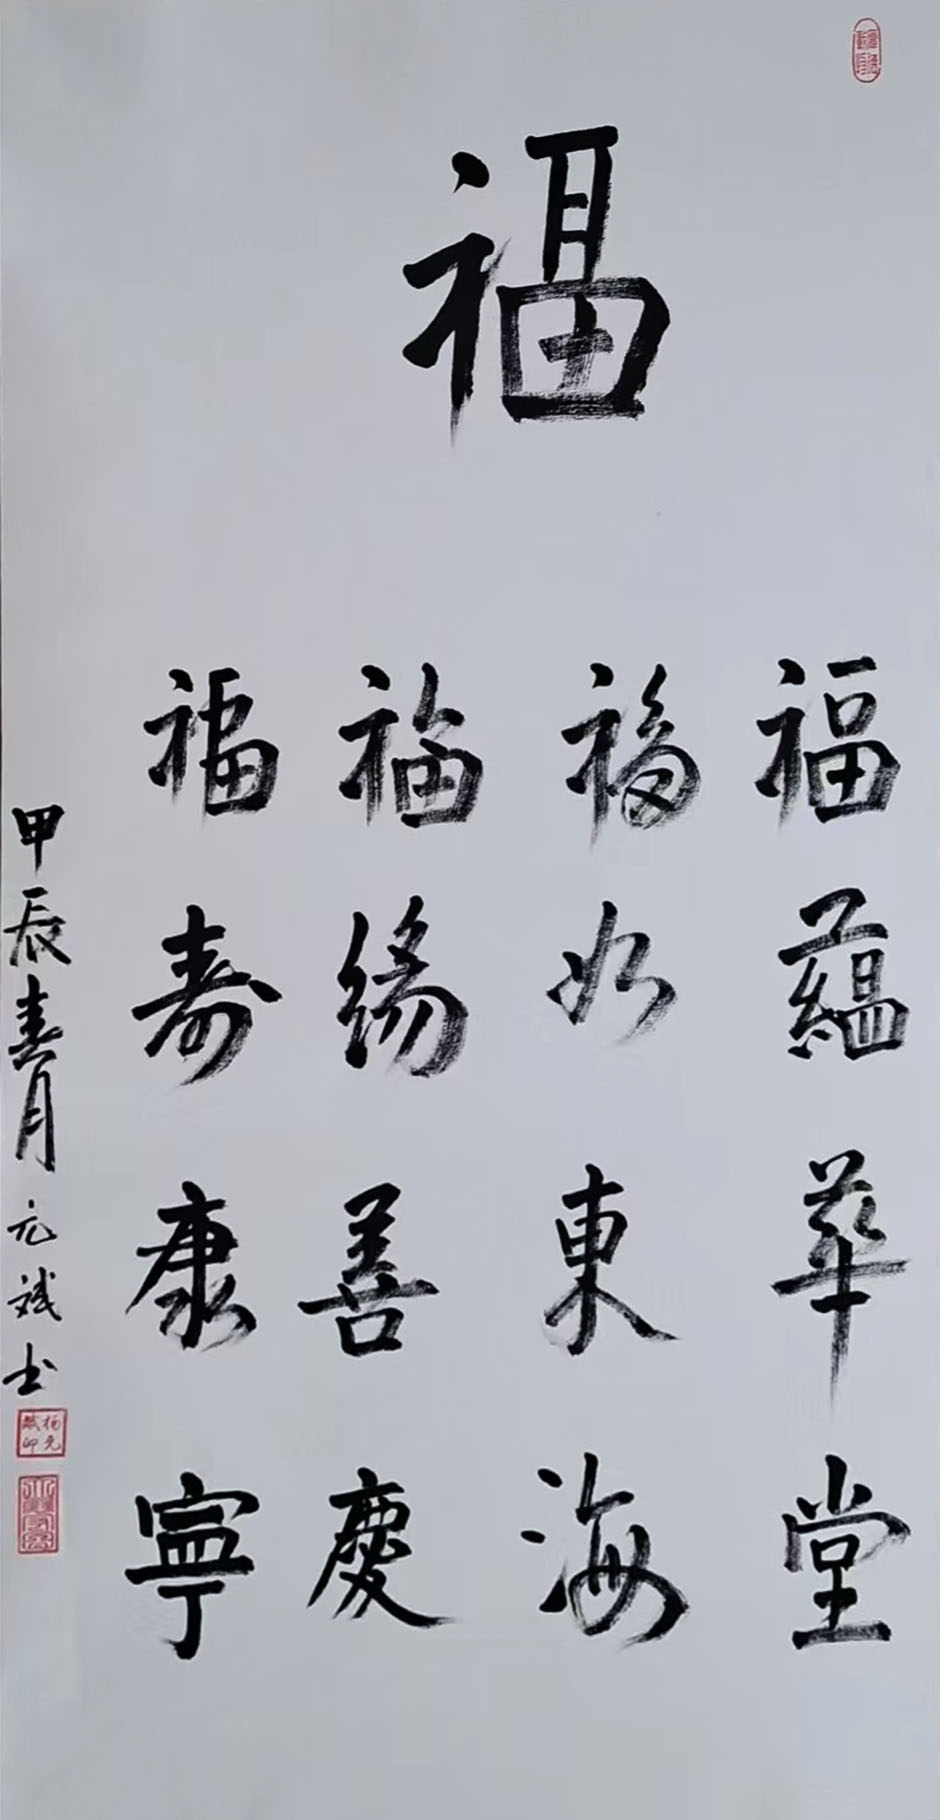 福
福蘊華堂
福如東海
福緣善慶
福壽康寧
甲辰春月元斌书
杨元斌印